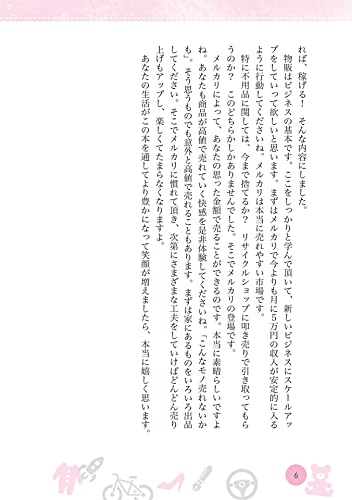 れば、稼げる！　そんな内容にしました。
　物販はビジネスの基本です。ここをしっかりと学んで頂いて、新しいビジネスにスケールアッ
プをしていって欲しいと思います。まずはメルカリで今よりも月に５万円の収入が安定的に入る
ように行動してくださいね。メルカリは本当に売れやすい市場です。
　特に不用品に関しては、今まで捨てるか？　リサイクルショップに叩き売りで引き取ってもら
うのか？　このどちらかしかありませんでした。そこでメルカリの登場です。
　メルカリによって、あなたの思った金額で売ることができるのです。本当に素晴らしいですよ
ね。あなたも商品が高値で売れていく快感を是非体験してくださいね。「こんなモノ売れないか
も」。そう思うものでも意外と高値で売れることもあります。まずは家にあるものをいろいろ出品
してください。そこでメルカリに慣れて頂き、次第にさまざまな工夫をしていけばどんどん売り
上げもアップし、楽しくてたまらなくなりますよ。
　あなたの生活がこの本を通してより豊かになって笑顔が増えましたら、本当に嬉しく思います。
6